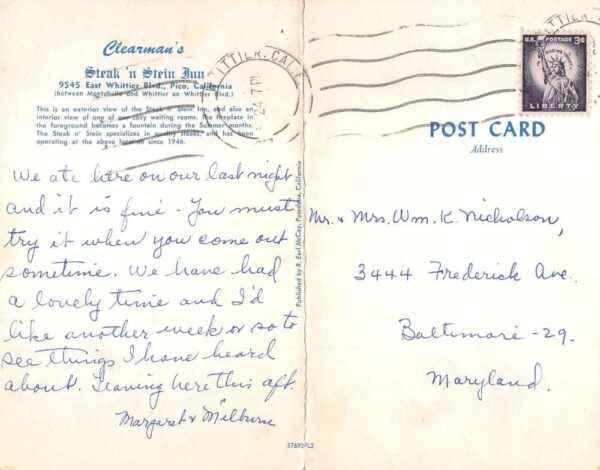 Clearman's
Steak 'n Stein Inn
9545 East Whittier Blvd., Pico, California
(Between Montebello and Whittier on Whittier Blvd.)
This is an exterior view of the Steak 'n' Stein Inn, and also an
interior view of one of our cozy waiting rooms. The fireplace in
the foreground becomes a fountain during the Summer months.
The Steak n' Stein specializes in quality steaks, and has been
operating at the above location since 1946.
We ate here on our last night
and it is fine - You must
try it when you come out
sometime. We have had
a lovely time and I'd
like another week or so to
see things I have heard
about. Leaving here this aft.
Margaret & Milburn
Published by R. Earl McCoy, Pasadena, California
S7692FL2
WHITTIER, CALIF.
24 7 PM
WHITTIER
U.S. POSTAGE 3¢
IN GOD WE TRUST
LIBERTY
POST CARD
Address
Mr. & Mrs. Wm. K. Nicholson,
3444 Frederick Ave.
Baltimore - 29.
Maryland.